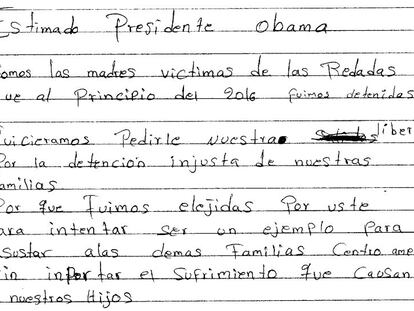 Estimado Presidente Obama
omos las madres victimas de las Redadas
ue al Principio del 2016 fuimos detenidas
uicieramos Pedirle nuestra liber
Por la detencion injusta de nuestras
amilias
Por que Fuimos elejidas Por uste
ara intentar ser un ejemplo para
sustar alas demas Familias Centro ame
in inportar el Sufrimiento que Causan
nuestros Hijos